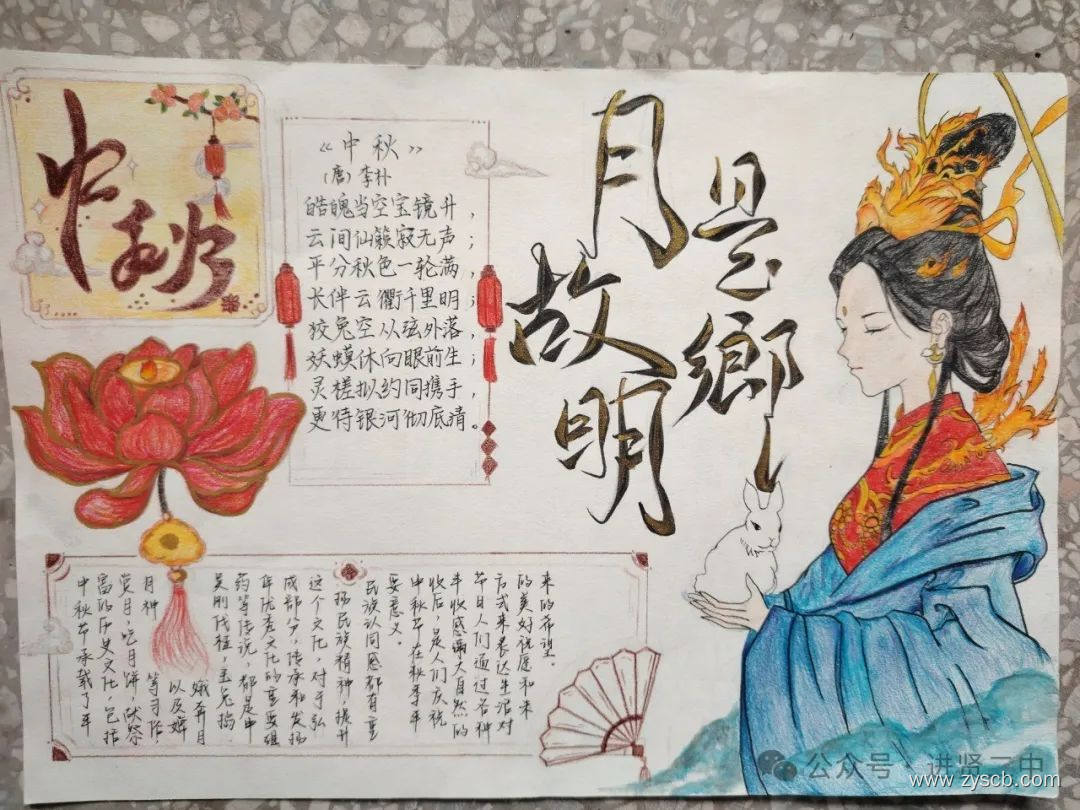 中秋
《中秋》
（唐）李朴
皓魄当空宝镜升，
云间仙籁寂无声；
平分秋色一轮满，
长伴云衢千里明；
狡兔空从弦外落，
妖蟆休向眼前生；
灵槎拟约同携手，
更待银河彻底清。
月是
故鄉
明
中秋节承载了丰
富的历史文化，包括
赏月，吃月饼，祭
月神 等习俗，
以及嫦
娥奔月
吴刚伐桂，玉兔捣
药等传说，都是中
华优秀文化的重要组
成部分，传承和发扬
这个文化，对于弘
扬民族精神，提升
民族认同感都有重
要意义。
中秋节在秋季丰
收后，是人们庆祝
丰收感谢大自然的
节日人们通过各种
方式来表达生活对
的美好祝愿和未
来的希望。
公众号·进贤二中
www.zyscb.com